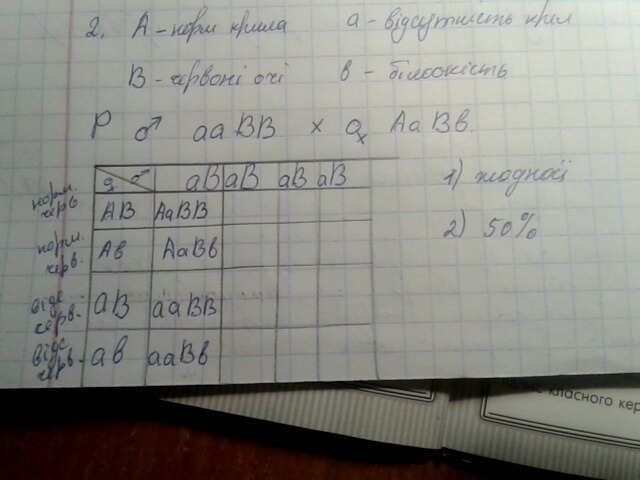 2. А - норм крила а - відсутність крил
В - червоні очі в - білоокість
Р ♂ aaBB x ♀ AaBв
♀ ♂ aB aB aB aB
норм. черв. AB AaBB
норм. черв. Aв AaBв
відс. черв. aB aaBB
відс. черв. aв aaBв
1) жодної
2) 50%
класного кер